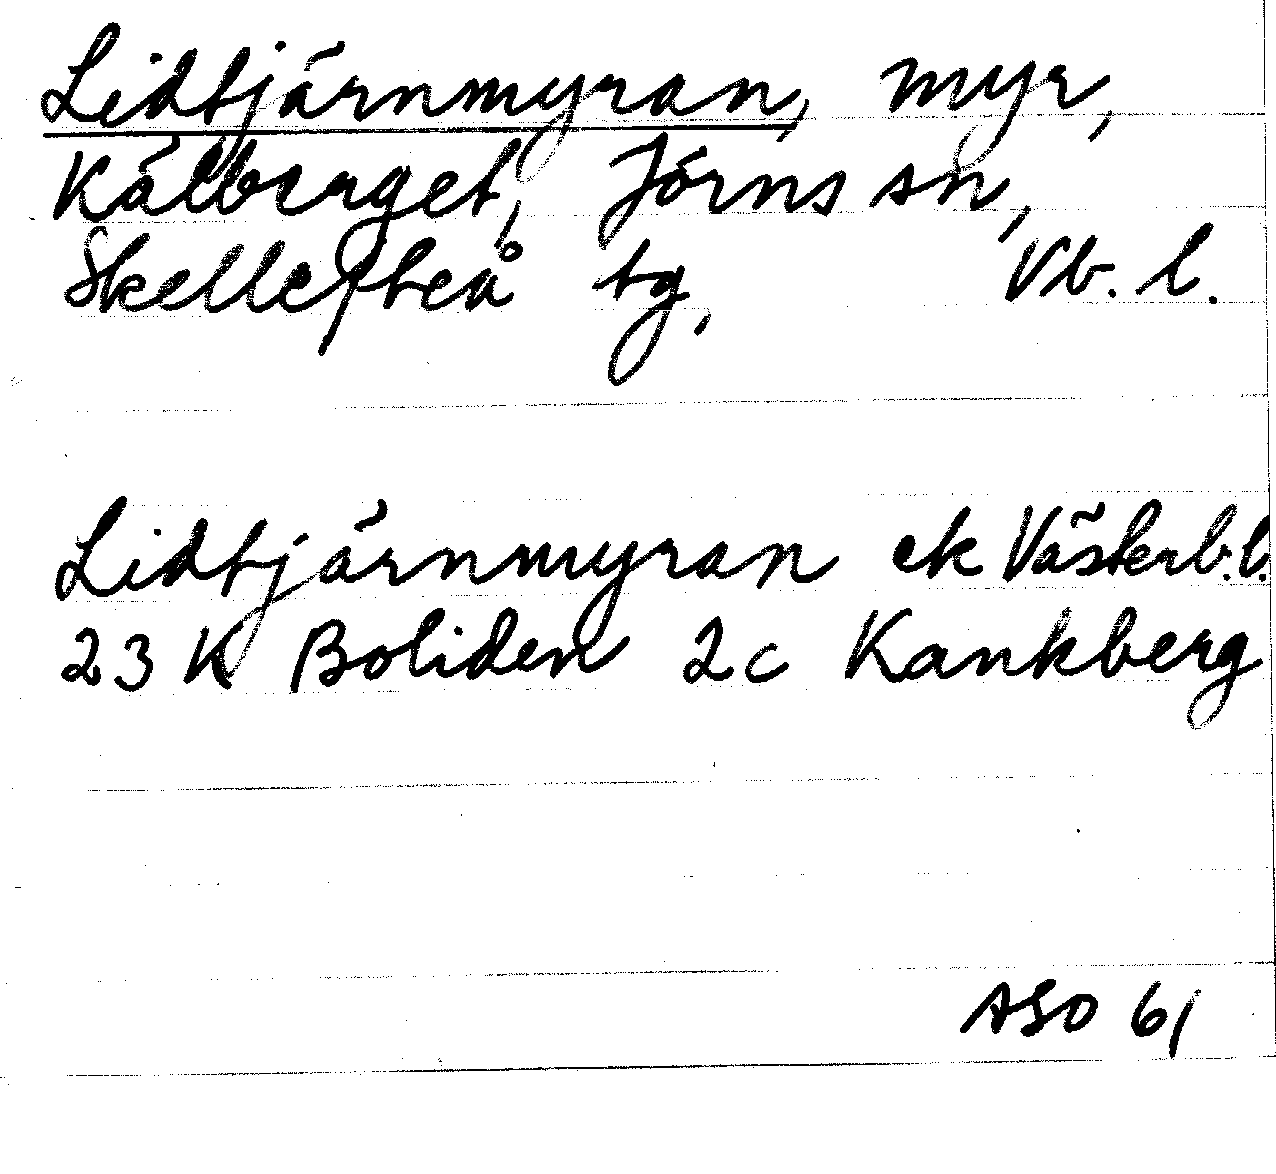 Lidtjärnmyran, myr,
Kälberget, Jörns sn,
Skellefteå tg, Vb. l.
Lidtjärnmyran ek Västerb. l.
23 K Boliden 2c Kankberg
ASO 61